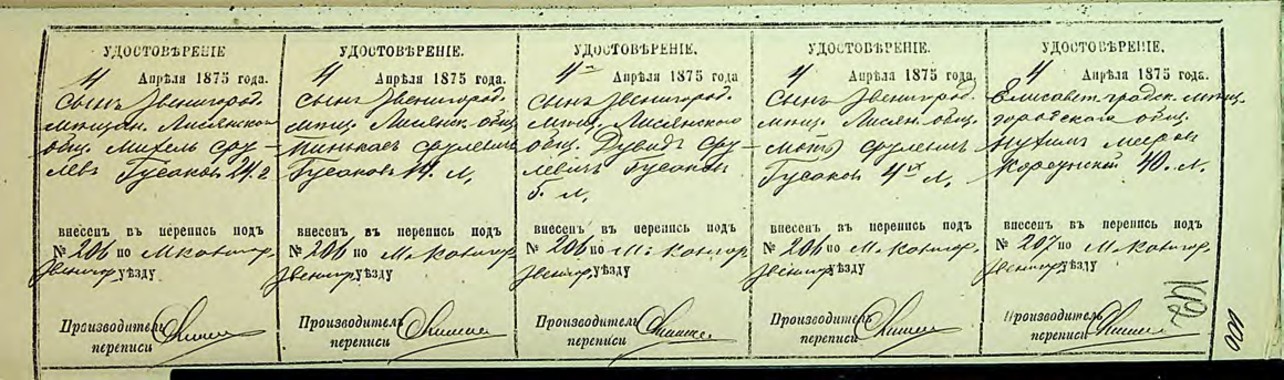 УДОСТОВѢРЕНІЕ
4 Апрѣля 1875 года.
Сынъ Звенигород.
мѣщан. Лисянскаго
общ. Михель Сру-
левъ Гусаковъ 24. г
внесенъ въ перепись подъ
№ 206 по М Конигор,
Звенигор. уѣзду
Производитель
переписи
УДОСТОВѢРЕНІЕ.
4 Апрѣля 1875 года.
Сынъ Звенигород.
мѣщ. Лисянск. общ
Срулевичъ
Гусаковъ 14. л,
внесенъ въ перепись подъ
№ 206 по М. Конигор,
Звенигор. уѣзду
Производитель
переписи
УДОСТОВѢРЕНІЕ.
4 Апрѣля 1875 года
Сынъ Звенигород.
мѣщ. Лисянского
общ. Дувидъ Сру-
левичъ Гусаковъ
5. л,
внесенъ въ перепись подъ
№ 206 по М. Конигор
Звенигор. уѣзду
Производитель
переписи
УДОСТОВѢРЕНІЕ.
4 Апрѣля 1875 года,
Сынъ Звенигород.
мѣщ. Лисян. общ.
Срулевичъ
Гусаковъ 4хъ л,
внесенъ въ перепись подъ
№ 206 по М. Конигор,
Звенигор. уѣзду
Производитель
переписи
УДОСТОВѢРЕНІЕ.
4 Апрѣля 1875 года.
Елисаветградск. мѣщ.
городского общ.
Нухимъ Мееров
Корсунский 40. л,
внесенъ въ перепись подъ
№ 207 по М. Конигор.
Звенигор. уѣзду
Производитель
переписи
100